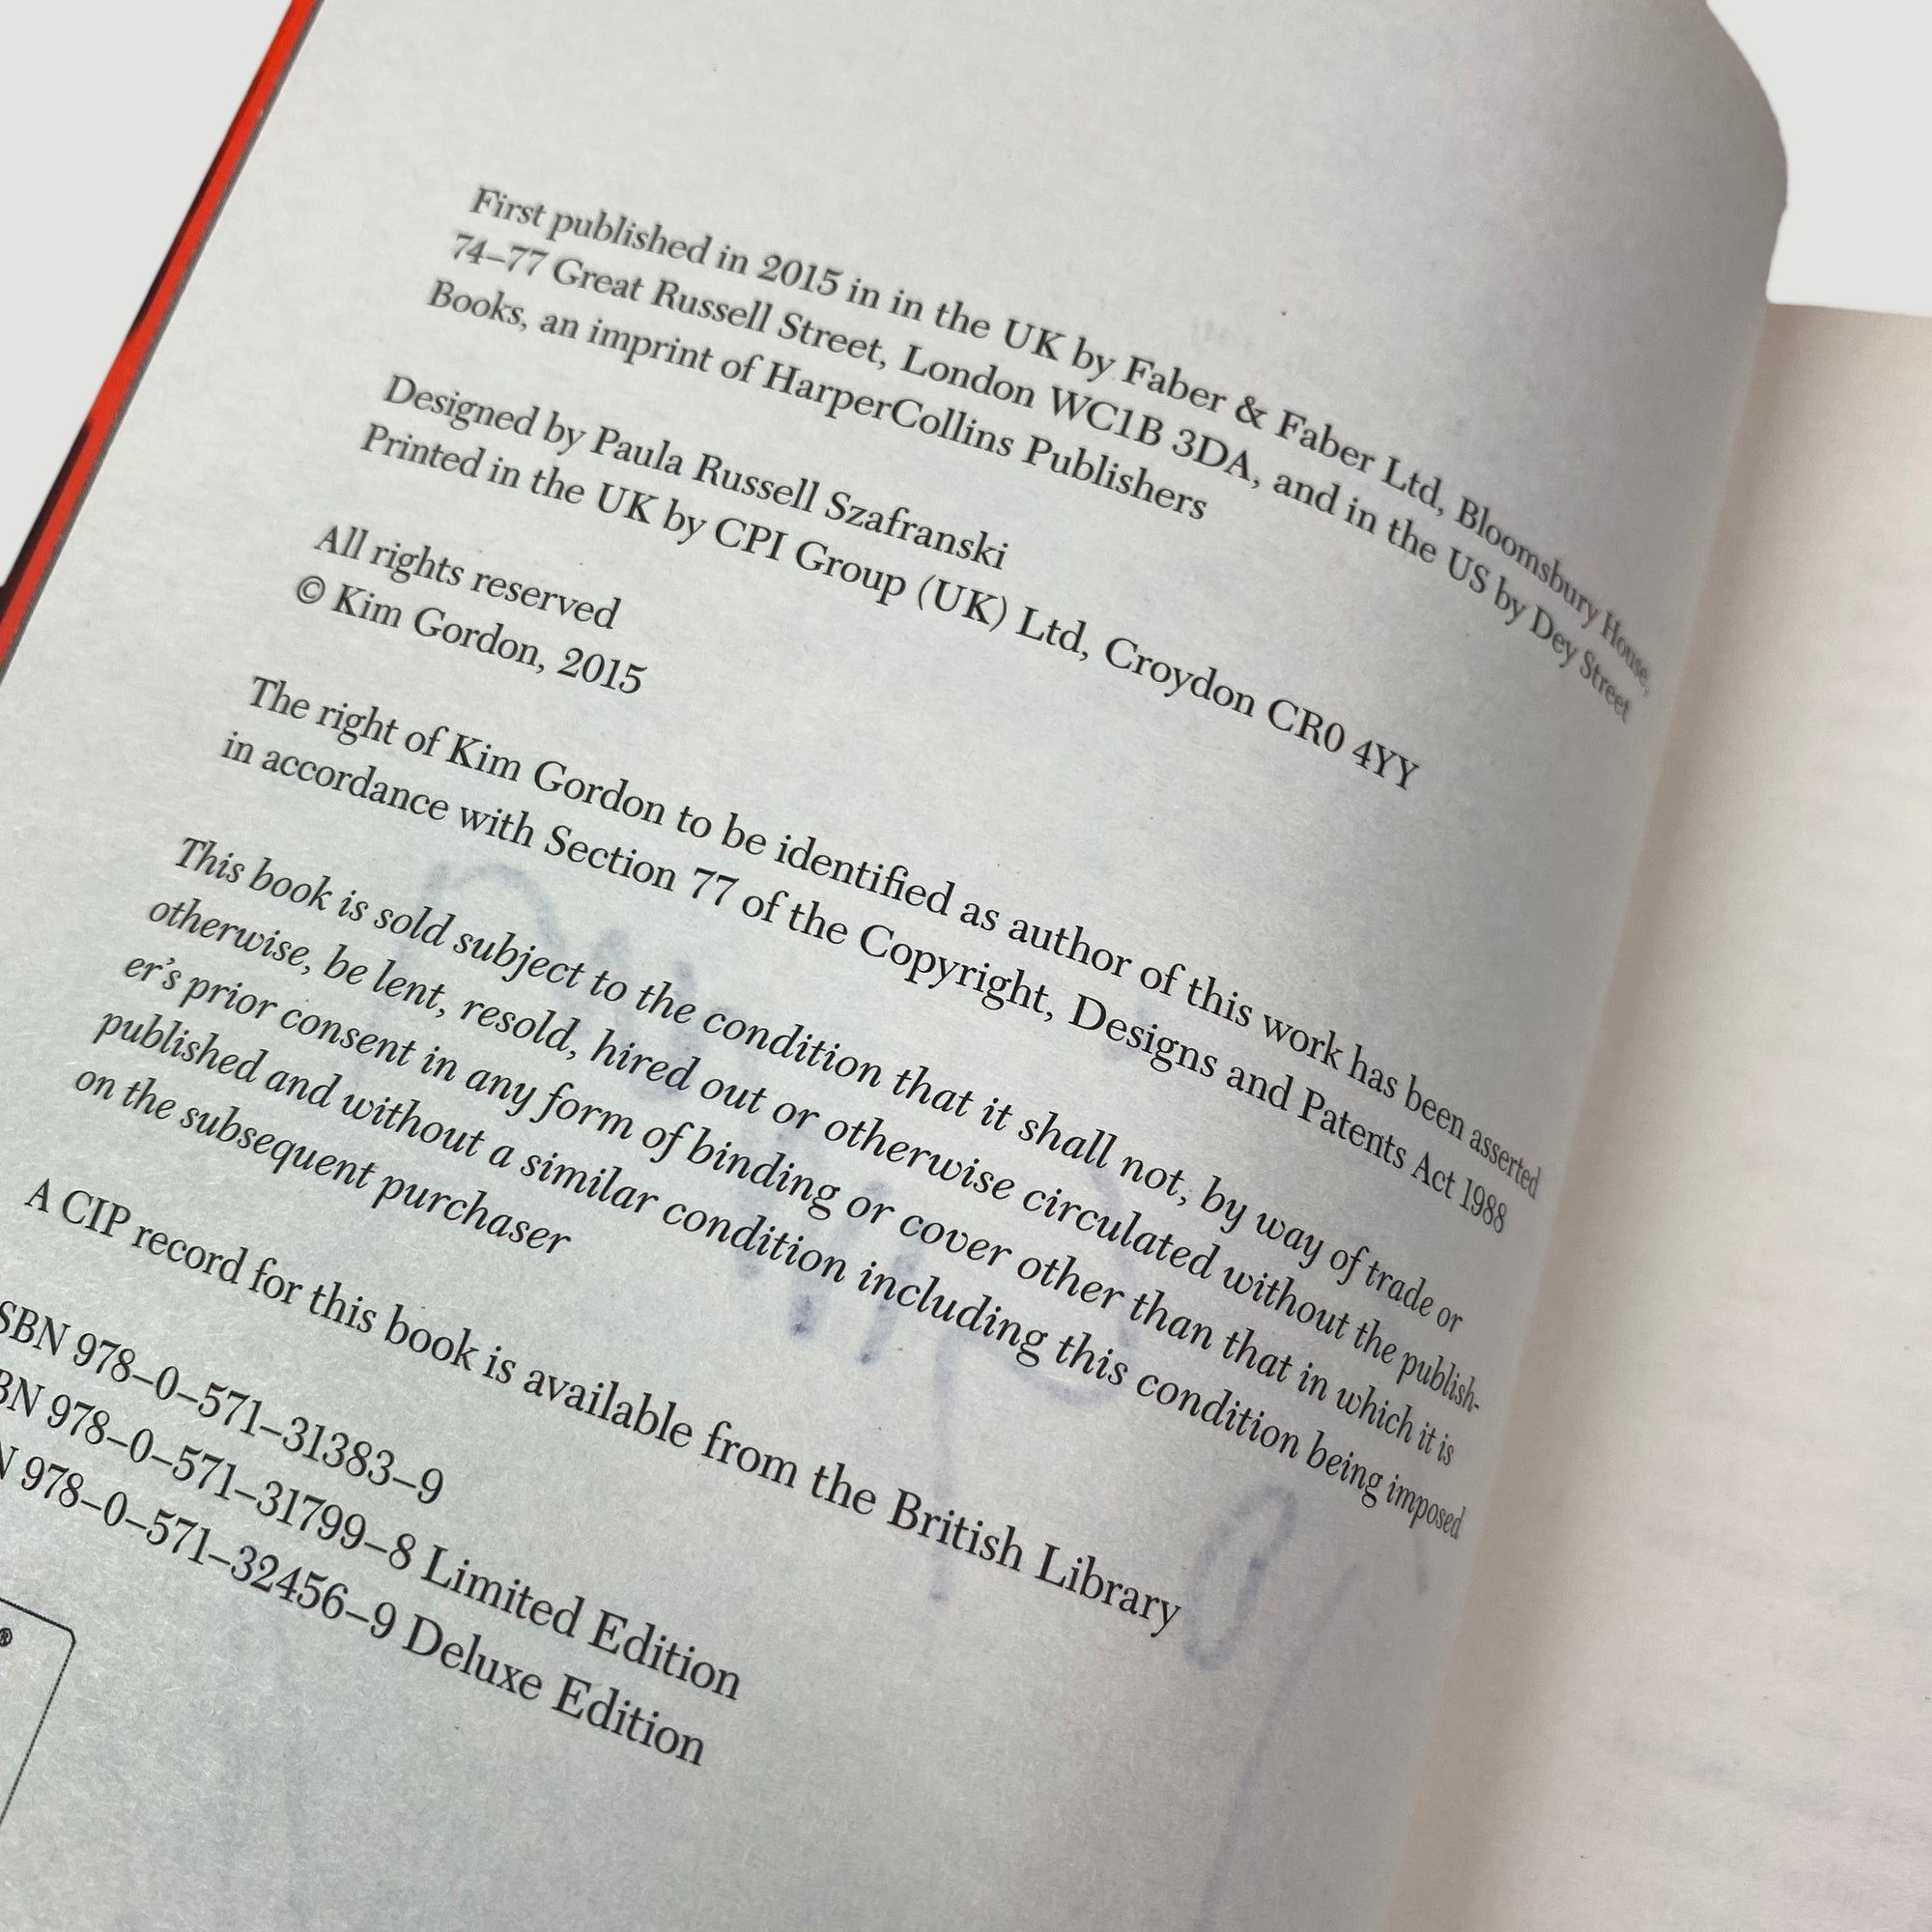 First published in 2015 in in the UK by Faber & Faber Ltd, Bloomsbury House,
74–77 Great Russell Street, London WC1B 3DA, and in the US by Dey Street
Books, an imprint of HarperCollins Publishers
Designed by Paula Russell Szafranski
Printed in the UK by CPI Group (UK) Ltd, Croydon CR0 4YY
All rights reserved
© Kim Gordon, 2015
The right of Kim Gordon to be identified as author of this work has been asserted
in accordance with Section 77 of the Copyright, Designs and Patents Act 1988
This book is sold subject to the condition that it shall not, by way of trade or
otherwise, be lent, resold, hired out or otherwise circulated without the publish-
er's prior consent in any form of binding or cover other than that in which it is
published and without a similar condition including this condition being imposed
on the subsequent purchaser
A CIP record for this book is available from the British Library
SBN 978–0–571–31383–9
BN 978–0–571–31799–8 Limited Edition
N 978–0–571–32456–9 Deluxe Edition
®